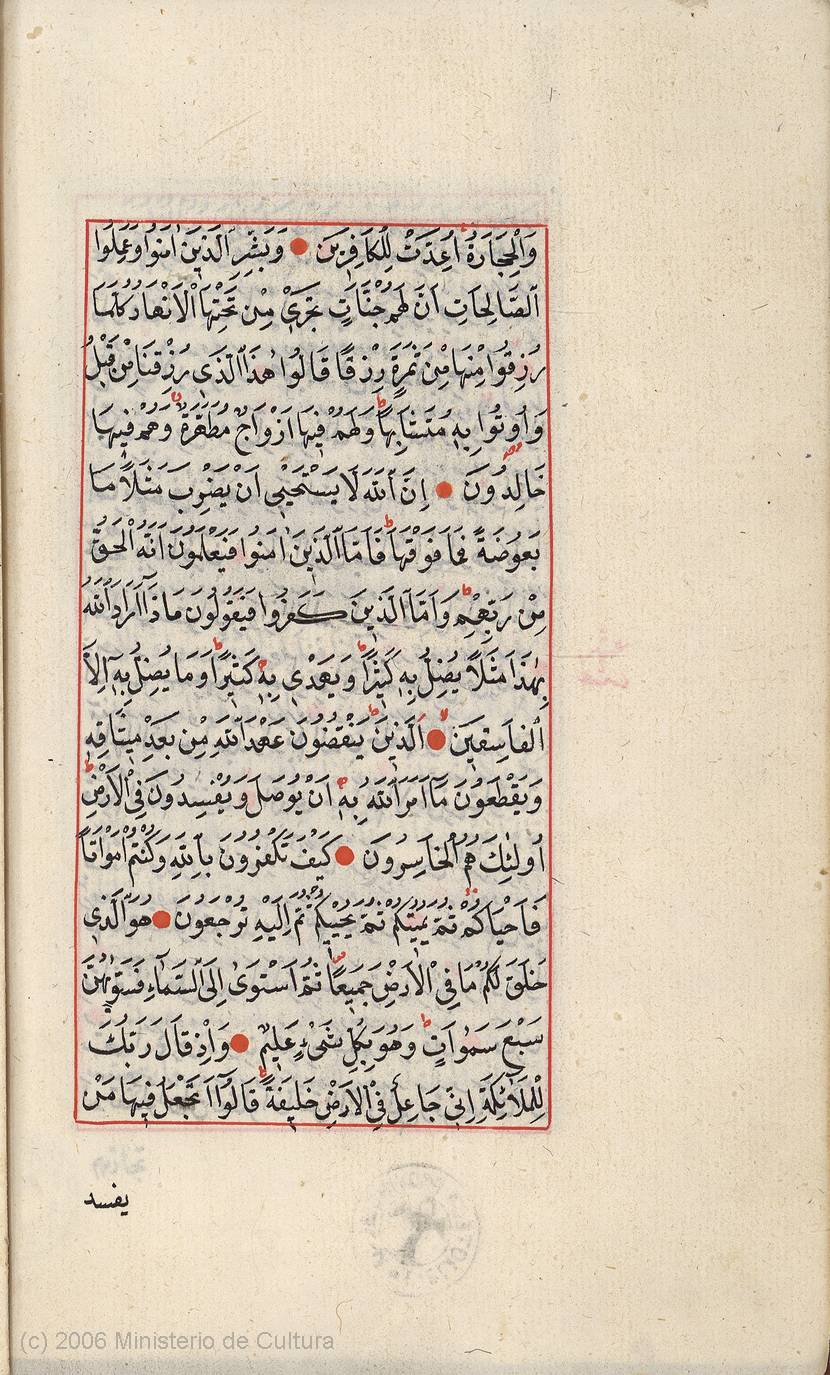 وَالْحِجَارَةُ اُعِدَّتْ لِلْكَافِرِينَ وَبَشِّرِ الَّذِينَ اٰمَنُوا وَعَمِلُوا
الصَّالِحَاتِ اَنَّ لَهُمْ جَنَّاتٍ تَجْرِى مِنْ تَحْتِهَا الْاَنْهَارُ كُلَّمَا
رُزِقُوا مِنْهَا مِنْ ثَمَرَةٍ رِزْقًا قَالُوا هٰذَا الَّذِى رُزِقْنَا مِنْ قَبْلُ
وَاُوتُوا بِهِ مُتَشَابِهًا وَلَهُمْ فِيهَا اَزْوَاجٌ مُطَهَّرَةٌ وَهُمْ فِيهَا
خَالِدُونَ اِنَّ اللّٰهَ لَا يَسْتَحْيِى اَنْ يَضْرِبَ مَثَلًا مَا
بَعُوضَةً فَمَا فَوْقَهَا فَاَمَّا الَّذِينَ اٰمَنُوا فَيَعْلَمُونَ اَنَّهُ الْحَقُّ
مِنْ رَبِّهِمْ وَاَمَّا الَّذِينَ كَفَرُوا فَيَقُولُونَ مَاذَا اَرَادَ اللّٰهُ
بِهٰذَا مَثَلًا يُضِلُّ بِهِ كَثِيرًا وَيَهْدِى بِهِ كَثِيرًا وَمَا يُضِلُّ بِهِ اِلَّا
الْفَاسِقِينَ الَّذِينَ يَنْقُضُونَ عَهْدَ اللّٰهِ مِنْ بَعْدِ مِيثَاقِهِ
وَيَقْطَعُونَ مَا اَمَرَ اللّٰهُ بِهِ اَنْ يُوصَلَ وَيُفْسِدُونَ فِى الْاَرْضِ
اُولٰئِكَ هُمُ الْخَاسِرُونَ كَيْفَ تَكْفُرُونَ بِاللّٰهِ وَكُنْتُمْ اَمْوَاتًا
فَاَحْيَاكُمْ ثُمَّ يُمِيتُكُمْ ثُمَّ يُحْيِيكُمْ ثُمَّ اِلَيْهِ تُرْجَعُونَ هُوَ الَّذِى
خَلَقَ لَكُمْ مَا فِى الْاَرْضِ جَمِيعًا ثُمَّ اسْتَوٰى اِلَى السَّمَاءِ فَسَوّٰيهُنَّ
سَبْعَ سَمٰوَاتٍ وَهُوَ بِكُلِّ شَىْءٍ عَلِيمٌ وَاِذْ قَالَ رَبُّكَ
لِلْمَلَائِكَةِ اِنِّى جَاعِلٌ فِى الْاَرْضِ خَلِيفَةً قَالُوا اَتَجْعَلُ فِيهَا مَنْ
يفسد
(c) 2006 Ministerio de Cultura